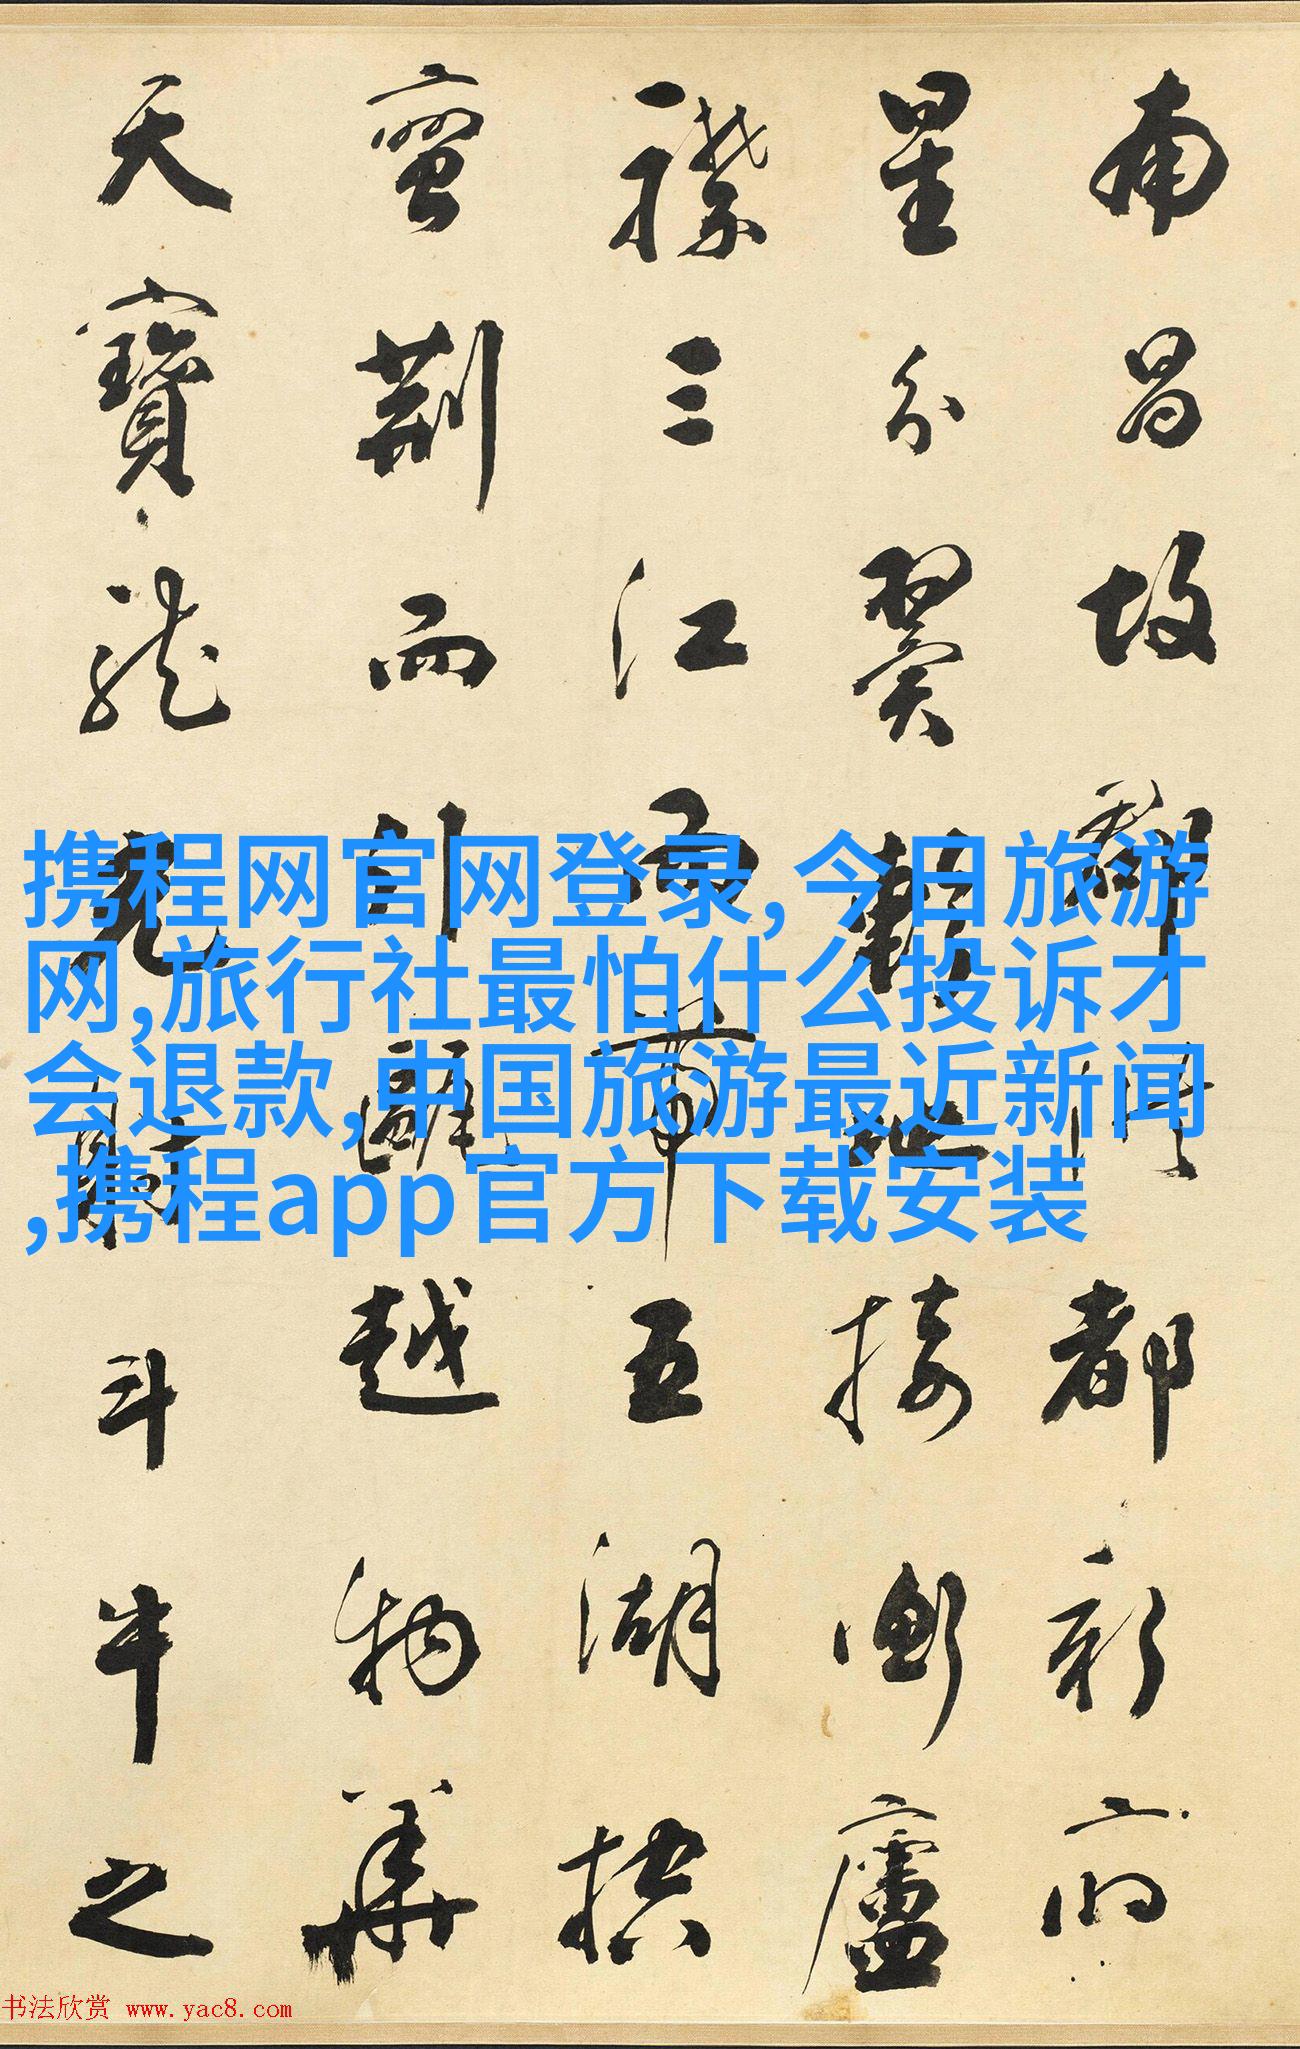 南昌故郡洪都新府
星分翼軫地接衡廬
襟三江而帶五湖控
蠻荊而引甌越物華
天寶龍光射斗牛之
携程网官网登录,今日旅游
网,旅行社最怕什么投诉才
会退款,中国旅游最近新闻
,携程app官方下载安装
书法欣赏 www.yac8.com